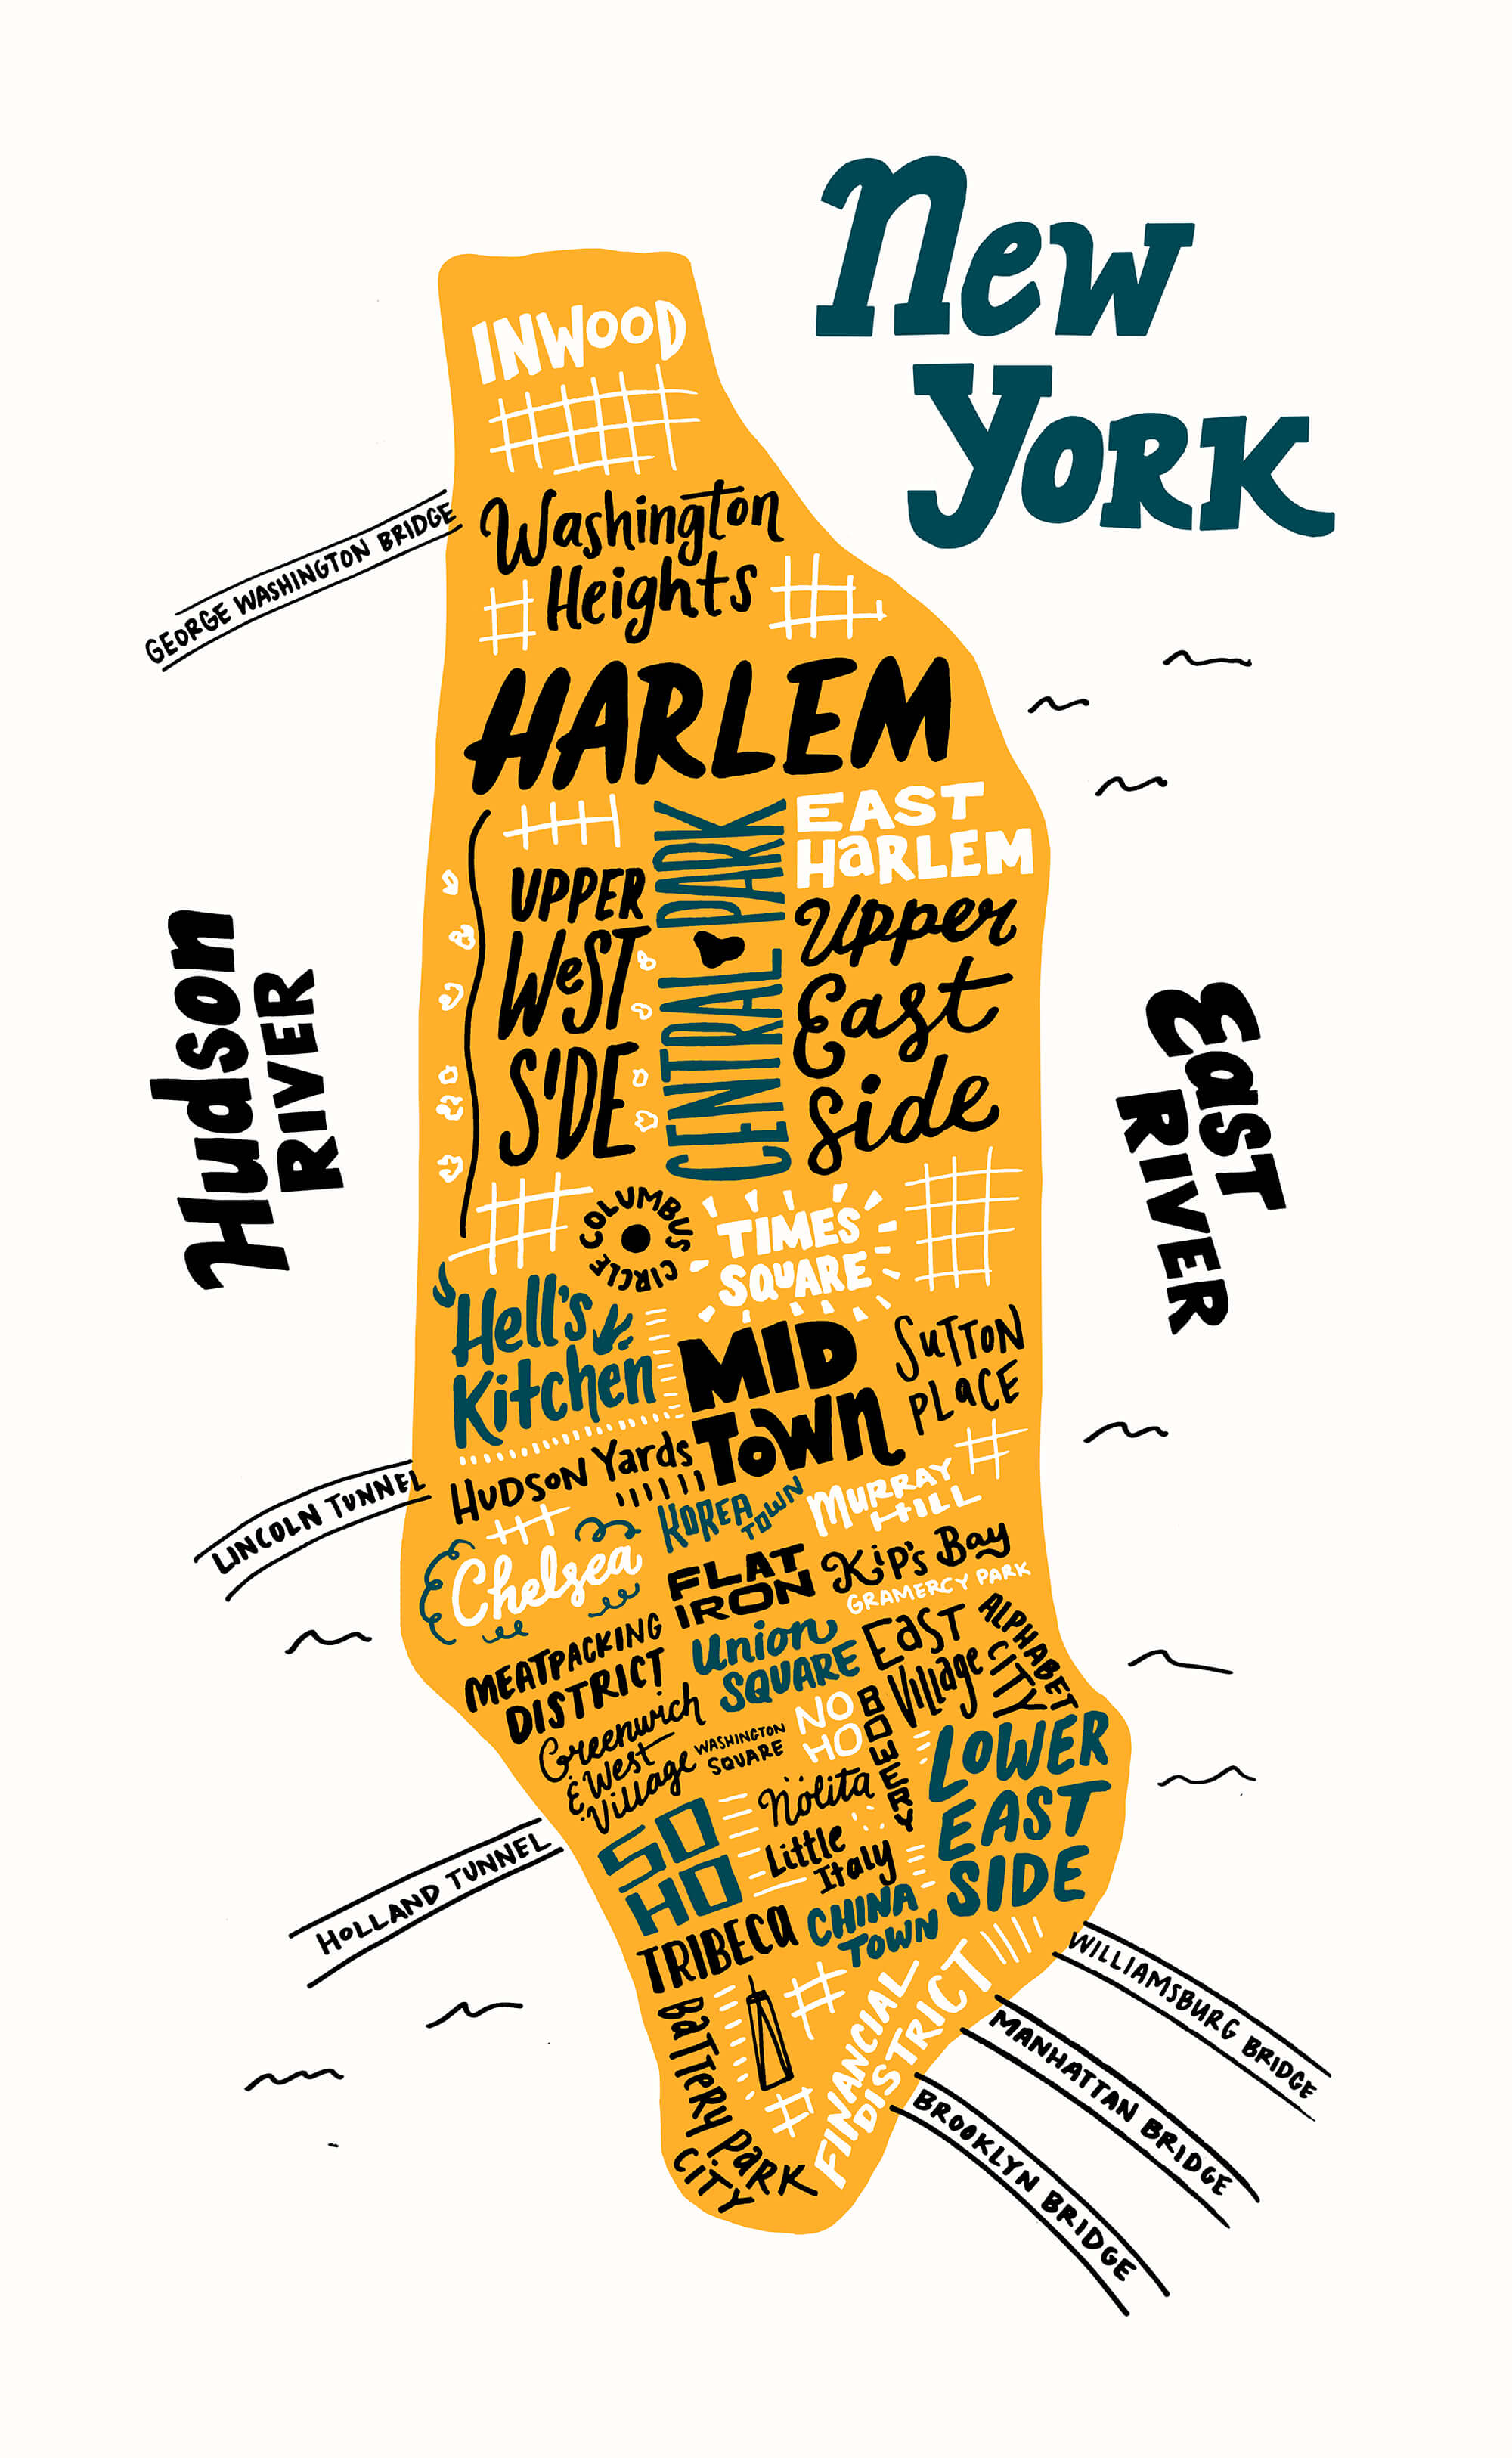 New
York
INWOOD
GEORGE WASHINGTON BRIDGE
Washington
Heights
HARLEM
CENTRAL PARK
EAST
HaRLEM
UPPER
WeST
SiDE
Upper
East
Side
Hudson
RIVER
East
RIVER
COLUMBUS CIRCLE
TIME'S
SQUARE
Hell's
Kitchen
MID
TOWN
SuTTON
PLaCE
HuDSON Yards
LINCOLN TUNNEL
KOREA
TOWN
MURRAY
HILL
Chelsea
FLAT
IRON
Kip's Bay
GRAMERCY PARK
MEATPACKING
DISTRICT
Union
SQUARE
EaST
Village
ALPHABET
CITY
Greenwich
& West
Village
WASHINGTON
SQUARE
NO
HO
BOWERY
LOWER
EAST
SIDE
SO
HO
Nolita
Little
Italy
HOLLAND TUNNEL
TRIBECa
CHINA
TOWN
FINANCIAL
DISTRICT
BaTTERY PaRK
CiTY
WILLIAMSBURG BRIDGE
MANHATTAN BRIDGE
BROOKLYN BRIDGE